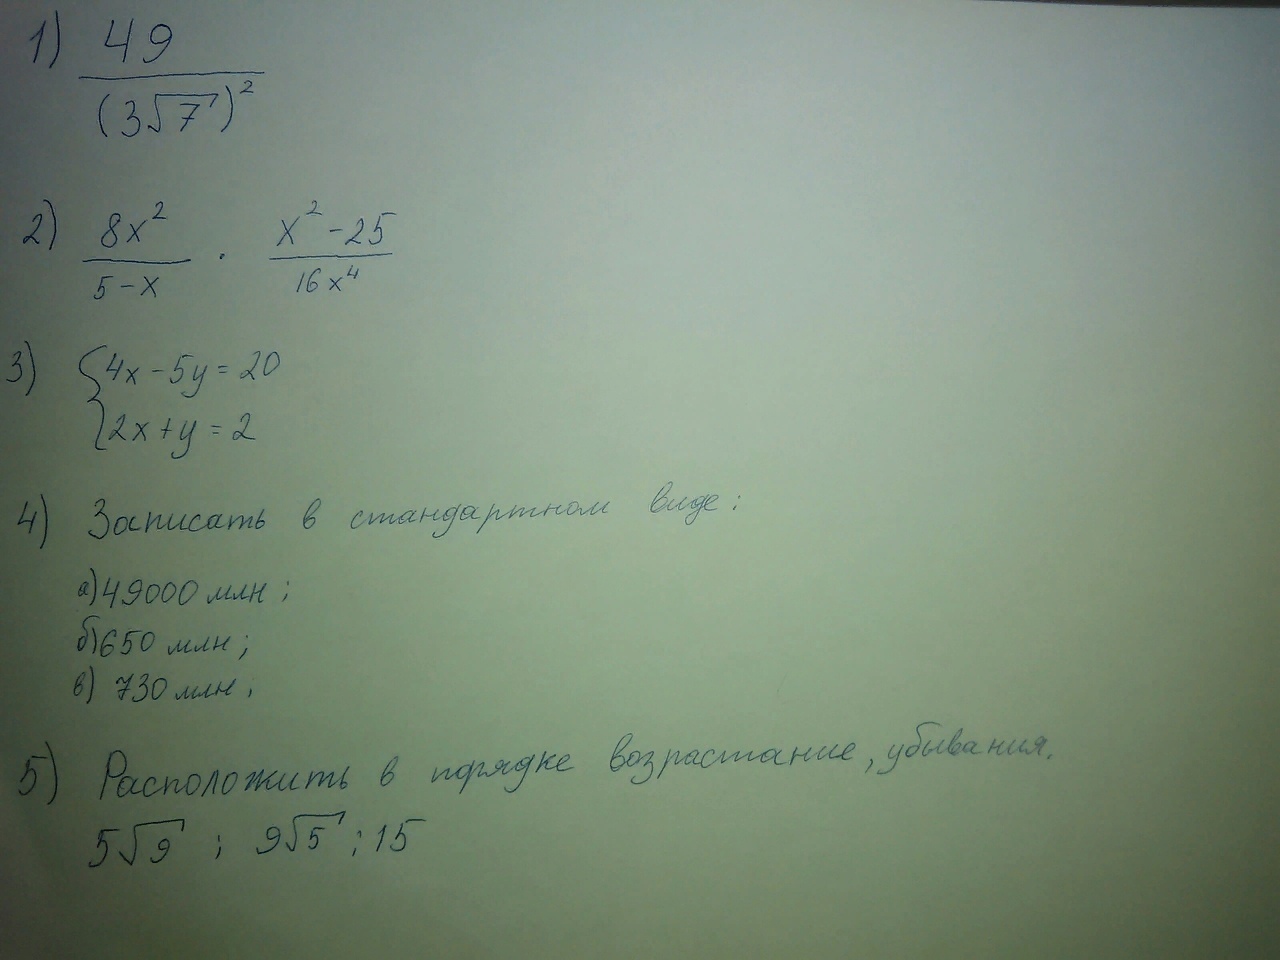 1) 49 / (3√7)²
2) 8x² / (5-x) · (x²-25) / 16x⁴
3) { 4x-5y=20
2x+y=2
4) Записать в стандартном виде:
а) 49000 млн;
б) 650 млн;
в) 730 млн;
5) Расположить в порядке возрастание, убывания.
5√9 ; 9√5 ; 15